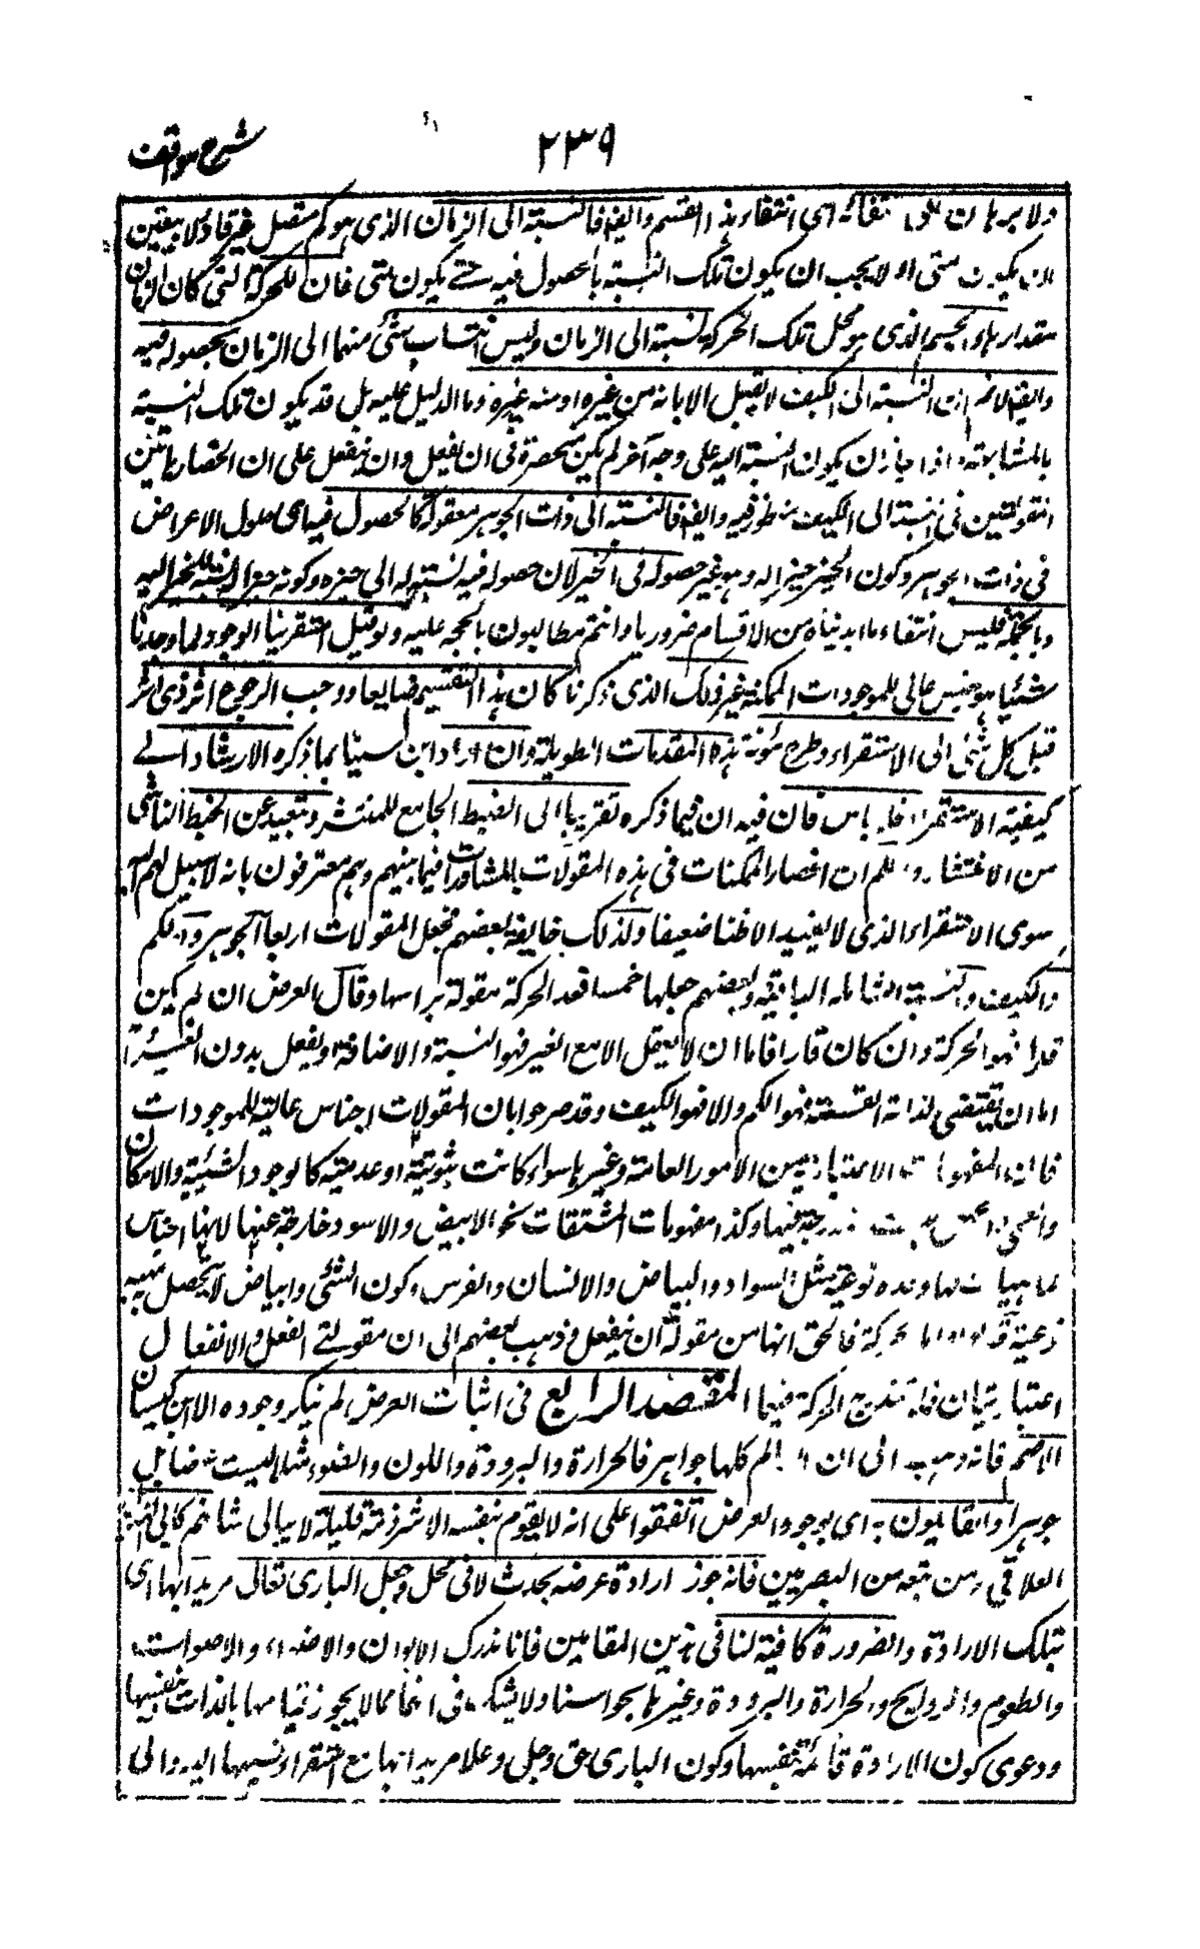 شرح مواقف
٢٣٩
ولا برهان على انتفائه اى انتفاء هذا القسم وايضا فالنسبة الى الزمان الذى هو كم متصل غير قار لا يتعين
ان يكون متى اذ لا يجب ان يكون تلك النسبة بالحصول فيه حتى يكون متى فان للحركة التى كان الزمان
مقدارها والجسم الذى هو محل تلك الحركة نسبة الى الزمان وليس انتساب شئ منهما الى الزمان بحصوله فيه
وايضا لانم ان النسبة الى الكيف لا يقبل الا بانه من غيره او منه غيره وما الدليل عليه بل قد يكون تلك النسبة
بالمشابهة واذا جاز ان يكون النسبة اليه على وجه آخر لم يكن منحصرة فى ان يفعل وان ينفعل على ان انحصار هاتين
المقولتين فى النسبة الى الكيف منظور فيه وايضا فالنسبة الى ذات الجوهر معقولة كالحصول فيه اى حلول الاعراض
فى ذات الجوهر وكون الحيز حيزا له وهو غير حصوله فى الحيز لان حصوله فيه نسبة له الى حيزه وكونه حيزا له نسبة للحيز اليه
وبالجملة فليس انتفاء ما ابديناه من الاقسام ضروريا وانتم مطالبون بالحجة عليه ولو قيل استقرينا الوجود لما وجدنا
شيئا هو جنس عالى للموجودات الممكنة غير ذلك الذى ذكرنا كان هذا التقسيم ضايعا ووجب الرجوع اثر ذى اثير
قبل كل شئ الى الاستقراء وطرح مؤنة هذه المقدمات الطويلة وان اراد ابن سينا بما ذكره الارشاد الى
كيفية الاستقراء فلا باس فان فيه ان فيما ذكره تقريبا الى الضبط الجامع للمنتشر وتبعيد عن الخبط الناشى
من الانتشار واعلم ان انحصار الممكنات فى هذه المقولات من المشهورات فيما بينهم وهم معترفون بانه لا سبيل لهم اليه
سوى الاستقراء الذى لا يفيد الا ظنا ضعيفا ولذلك خالفه بعضهم فجعل المقولات اربعا الجوهر والكم
والكيف والنسبة الشاملة للباقية وبعضهم جعلها خمسا فعد الحركة مقولة براسها وقال العرض ان لم يكن
قارا فهو الحركة وان كان قارا فاما ان لا يعقل الا مع الغير فهو النسبة والاضافة او يعقل بدون الغير و
اما ان يقتضى لذاته القسمة فهو الكم والا فهو الكيف وقد صرحوا بان المقولات اجناس عالية للموجودات
فان المفهومات الاعتبارية من الامور العامة وغيرها سواء كانت ثبوتية او عدمية كالوجود والشيئية والامكان
والعمى والجهل ليست مندرجة فيها وكذا مفهومات المشتقات نحو الابيض والاسود خارجة عنها لانها اجناس
لماهيات لها وحدة نوعية مثل السواد والبياض والانسان والفرس وكون الشئ ذا بياض لا يتحصل به مهية
نوعية قالوا واما الحركة فالحق انها من مقولة ان ينفعل وذهب بعضهم الى ان مقولتى الفعل والانفعال
اعتباريتان فلا تندرج الحركة فيهما المقصد الرابع فى اثبات العرض لم ينكر وجوده الا ابن كيسان
الاصم فانه ذهب الى ان العالم كلها جواهر فالحرارة والبرودة واللون والضوء مثلا ليست عنده اعراضا بل
جواهر والقائلون به اى بوجود العرض اتفقوا على انه لا يقوم بنفسه الا شرذمة قليلة لا يبالى بشانهم كابى الهذيل
العلاف ومن تبعه من البصريين فانه جوز ارادة عرضية يحدث لا فى محل وجعل البارى تعالى مريدا بها اى
بتلك الارادة والضرورة كافية لنا فى هذين المقامين فانا ندرك الالوان والاضواء والاصوات
والطعوم والروايح والحرارة والبرودة وغيرها بحواسنا ولا يشك فى انها مما لا يجوز قيامها بالذات بنفسها
ودعوى كون الارادة قائمة بنفسها وكون البارى عز وجل وعلا مريدا بها مع استقرار نسبتها اليه والى